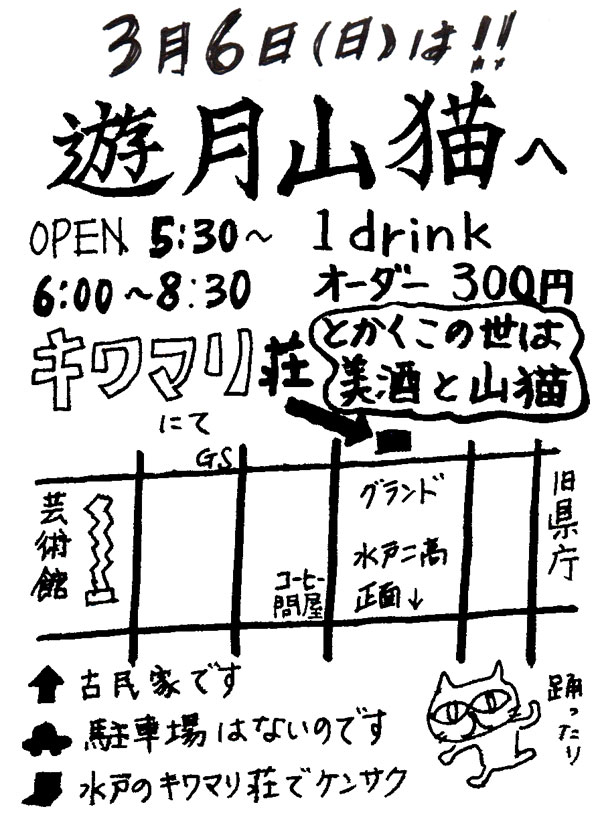 3月6日(日)は!!
遊月山猫へ
OPEN 5:30～ 1drink
6:00～8:30 オーダー 300円
キワマリ荘
にて
とかくこの世は
美酒と山猫
GS
グランド
旧県庁
芸術館
水戸二高
正面↓
コーヒー
問屋
古民家です
駐車場はないのです
水戸のキワマリ荘でケンサク
踊ったり